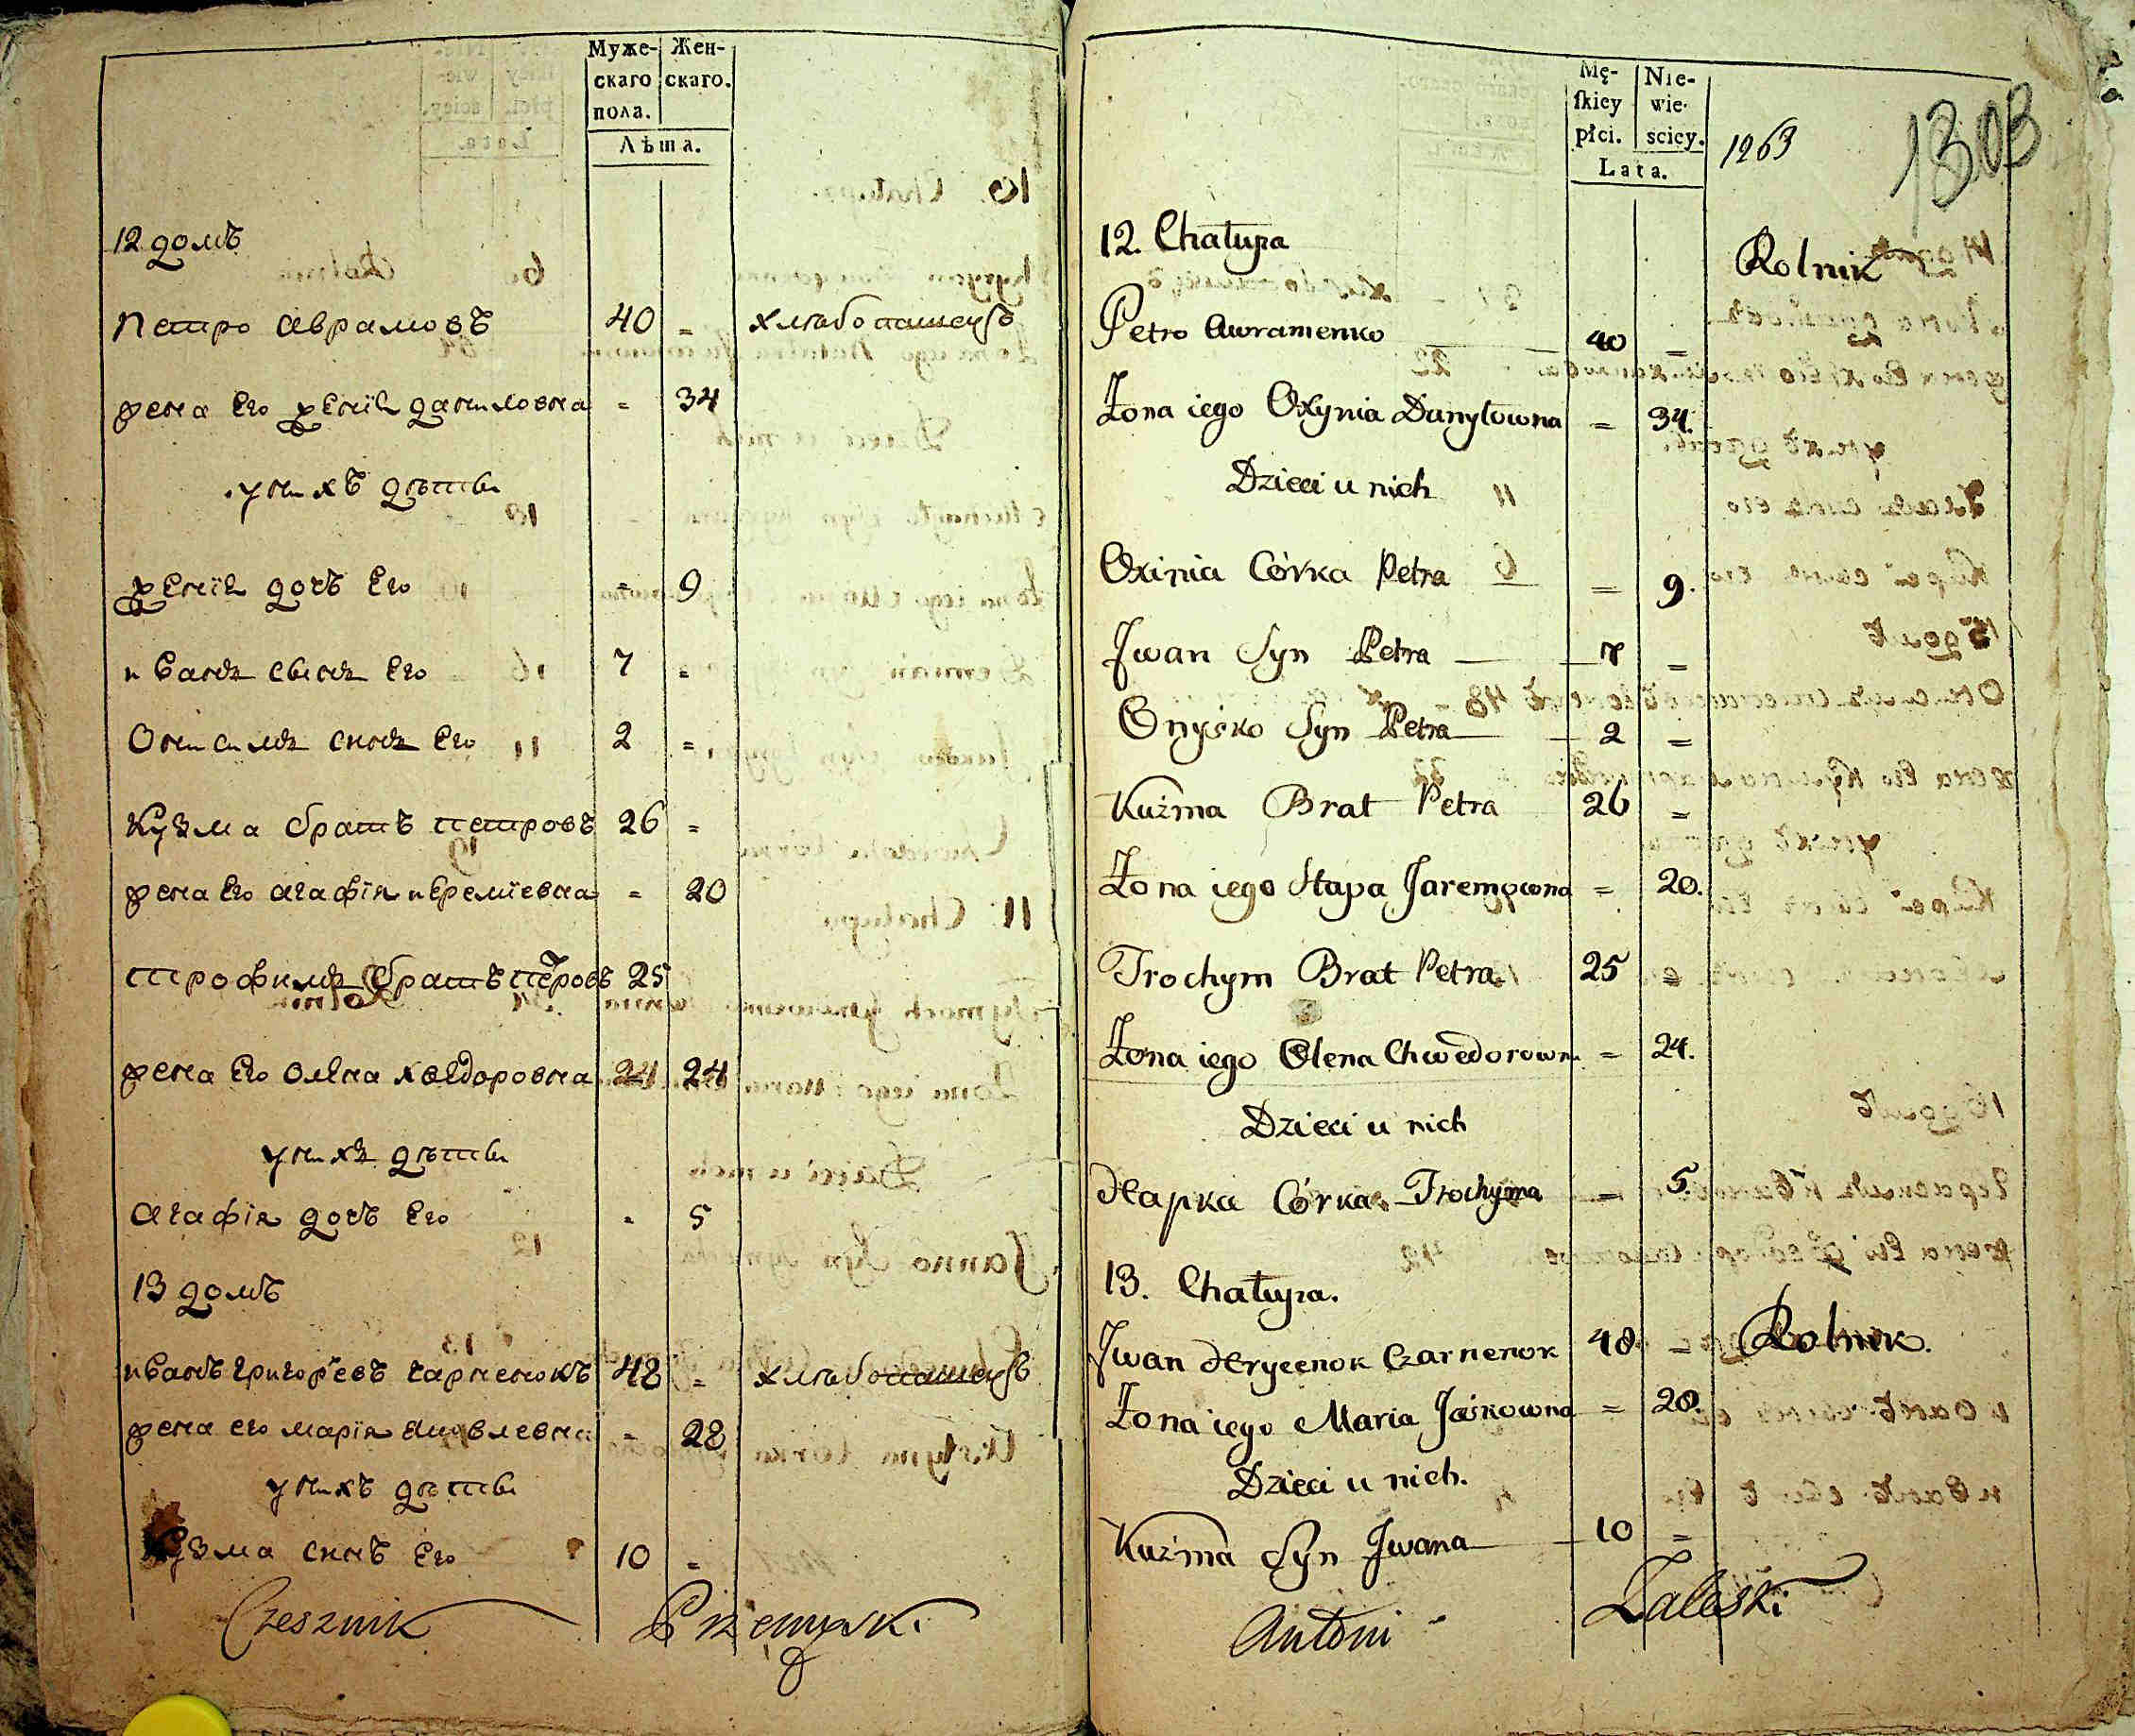 Муже- Жен-
скаго скаго.
пола.
Лѣта.
12 домъ
Петро Аврамовъ 40 = хлѣбопашецъ
жена Его Ксенія даниловна = 34
у нихъ дѣти
Ксенія дочь Его = 9
иванъ сынъ Его 7 =
Онисимъ снъ Его 2 =
Кузма братъ петровъ 26 =
жена Его агафія иеремѣевна = 20
трофимъ братъ петровъ 25
жена Его олена хведоровна 24 24
у нихъ дѣти
Агафія дочь Его = 5
13 домъ
иванъ григорьевъ чарненокъ 48 = хлѣбопашецъ
жена его марія яковлевна = 28
у нихъ дѣти
Кузма снъ Его 10 =
Czesznik
Mę- Nie-
skiey wie-
płci. scicy.
Lata.
1263 1303
12. Chałupa Rolnik
Petro Awramenko 40 =
Żona iego Oxynia Danyłowna = 34.
Dzieci u nich
Oxinia Córka Petra = 9.
Jwan Syn Petra 7 =
Onyśko Syn Petra 2 =
Kuźma Brat Petra 26 =
Żona iego Hapa Jaremowna = 20.
Trochym Brat Petra 25 =
Żona iego Olena Chwedorowna = 24.
Dzieci u nich
Hapka Córka Trochyma = 5.
13. Chałupa.
Jwan Hryceenok Czarnenok 48 = Rolnik.
Żona iego Maria Jaśkowna = 28.
Dzieci u nich.
Kuźma Syn Jwana 10 =
Antoni Zaleski